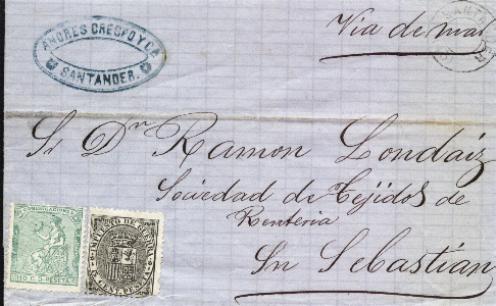 ANDRES CRESPO Y CA
SANTANDER.
Via de mar
Sr Dn Ramon Londaiz
Sociedad de Tejidos de
Renteria
Sn Sebastián
COMUNICACIONES
10 C. DE PESETA
IMPUESTO DE GUERRA
5 CENT. PESETA